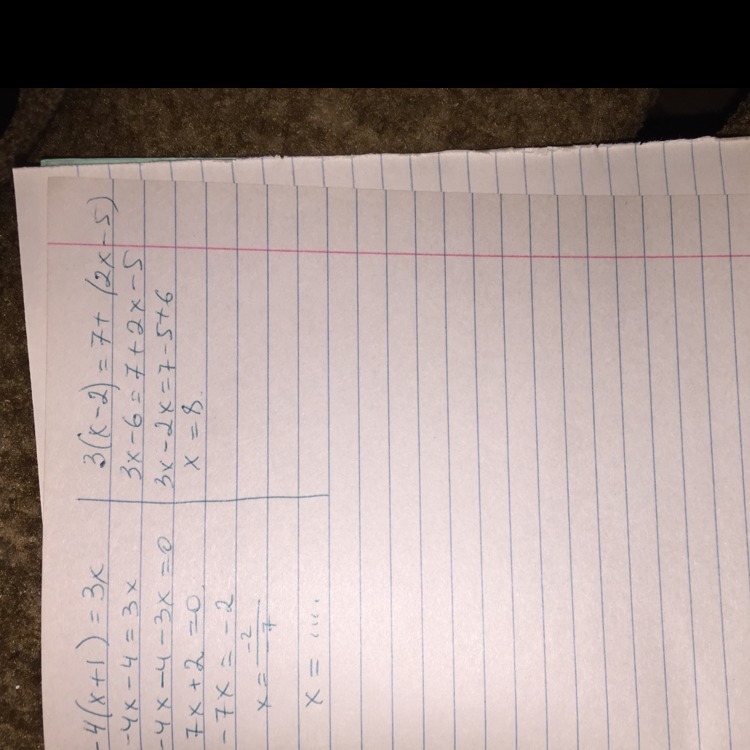 -4(x+1)=3x
-4x-4=3x
-4x-4-3x=0
7x+2=0
-7x=-2
x=-2/-7
x=....
3(x-2)=7+(2x-5)
3x-6=7+2x-5
3x-2x=7-5+6
x=8.